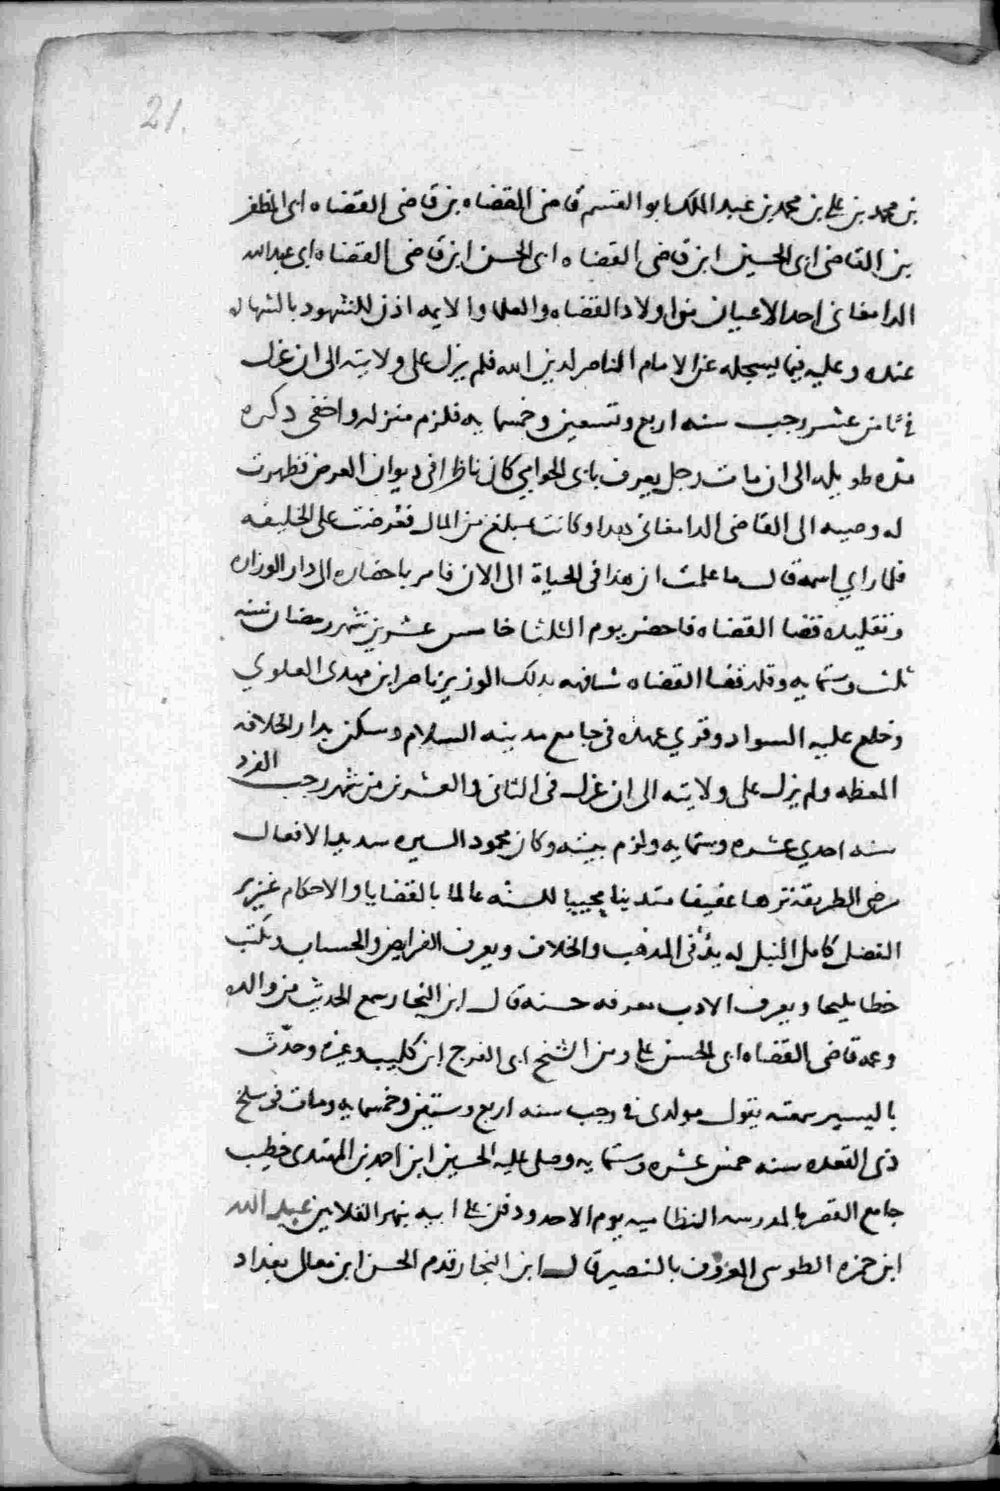 21.
بن محمد بن علي بن محمد بن عبد الملك ابو القسم قاضي القضاه بن قاضي القضاه ابي المظفر
بن القاضي ابي الحسين ابن قاضي القضاه ابي الحسن ابن قاضي القضاه ابي عبد الله
الدامغاني احد الاعيان من اولاد القضاه والعلما والايمه اذن للشهود بالشهاده
عنده وعليه فيما يسجله عن الامام الناصر لدين الله فلم يزل على ولايته الى ان عزل
في ثامن عشر رجب سنه اربع وتسعين وخمسمايه فلزم منزله واخفى ذكره
مده طويله الى ان مات رجل يعرف بابن الحوابي كان ناظرا في ديوان العرض فظهرت
له وصيه الى القاضي الدامغاني هذا وكانت بمبلغ من المال فعرضت على الخليفه
فلما راي اسمه قال ما علمت ان هذا في الحياة الى الان فامر باحضاره الى دار الوزاره
وتقليده قضا القضاه فاحضر يوم الثلثا خامس عشرين شهر رمضان سنه
ثلث وستمايه وقلد قضا القضاه شافهه بذلك الوزير ناصر ابن مهدى العلوي
وخلع عليه السواد وقري عهده في جامع مدينه السلام وسكن بدار الخلافه
المعظمه ولم يزل على ولايته الى ان عزل في الثاني والعشرين من شهر رجب الفرد
سنه احدي عشره وستمايه ولزم بيته وكان محمود السيره سديد الافعال
مرضي الطريقه نزها عفيفا متدينا محببا للسنه عالما بالقضايا والاحكام غزير
الفضل كامل النبل له يد في المذهب والخلاف ويعرف الفرايض والحساب ويكتب
خطا مليحا ويعرف الادب معرفه حسنه قال ابن النجار سمع الحديث من والده
وعمه قاضي القضاه ابي الحسن علي ومن الشيخ ابي الفرج ابن كليب وغيره وحدّث
باليسير سمعته يقول مولدى في رجب سنه اربع وستين وخمسمايه ومات في سلخ
ذي القعده سنه خمس عشره وستمايه وصلى عليه الحسين ابن احمد بن المهتدى خطيب
جامع القصر بالمدرسه النظاميه يوم الاحد ودفن على ابيه بنهر القلايين عبد الله
ابن حمزه الطوسي المعروف بالنصير قال ابن النجار قدم الحسن ابن معالي بغداد